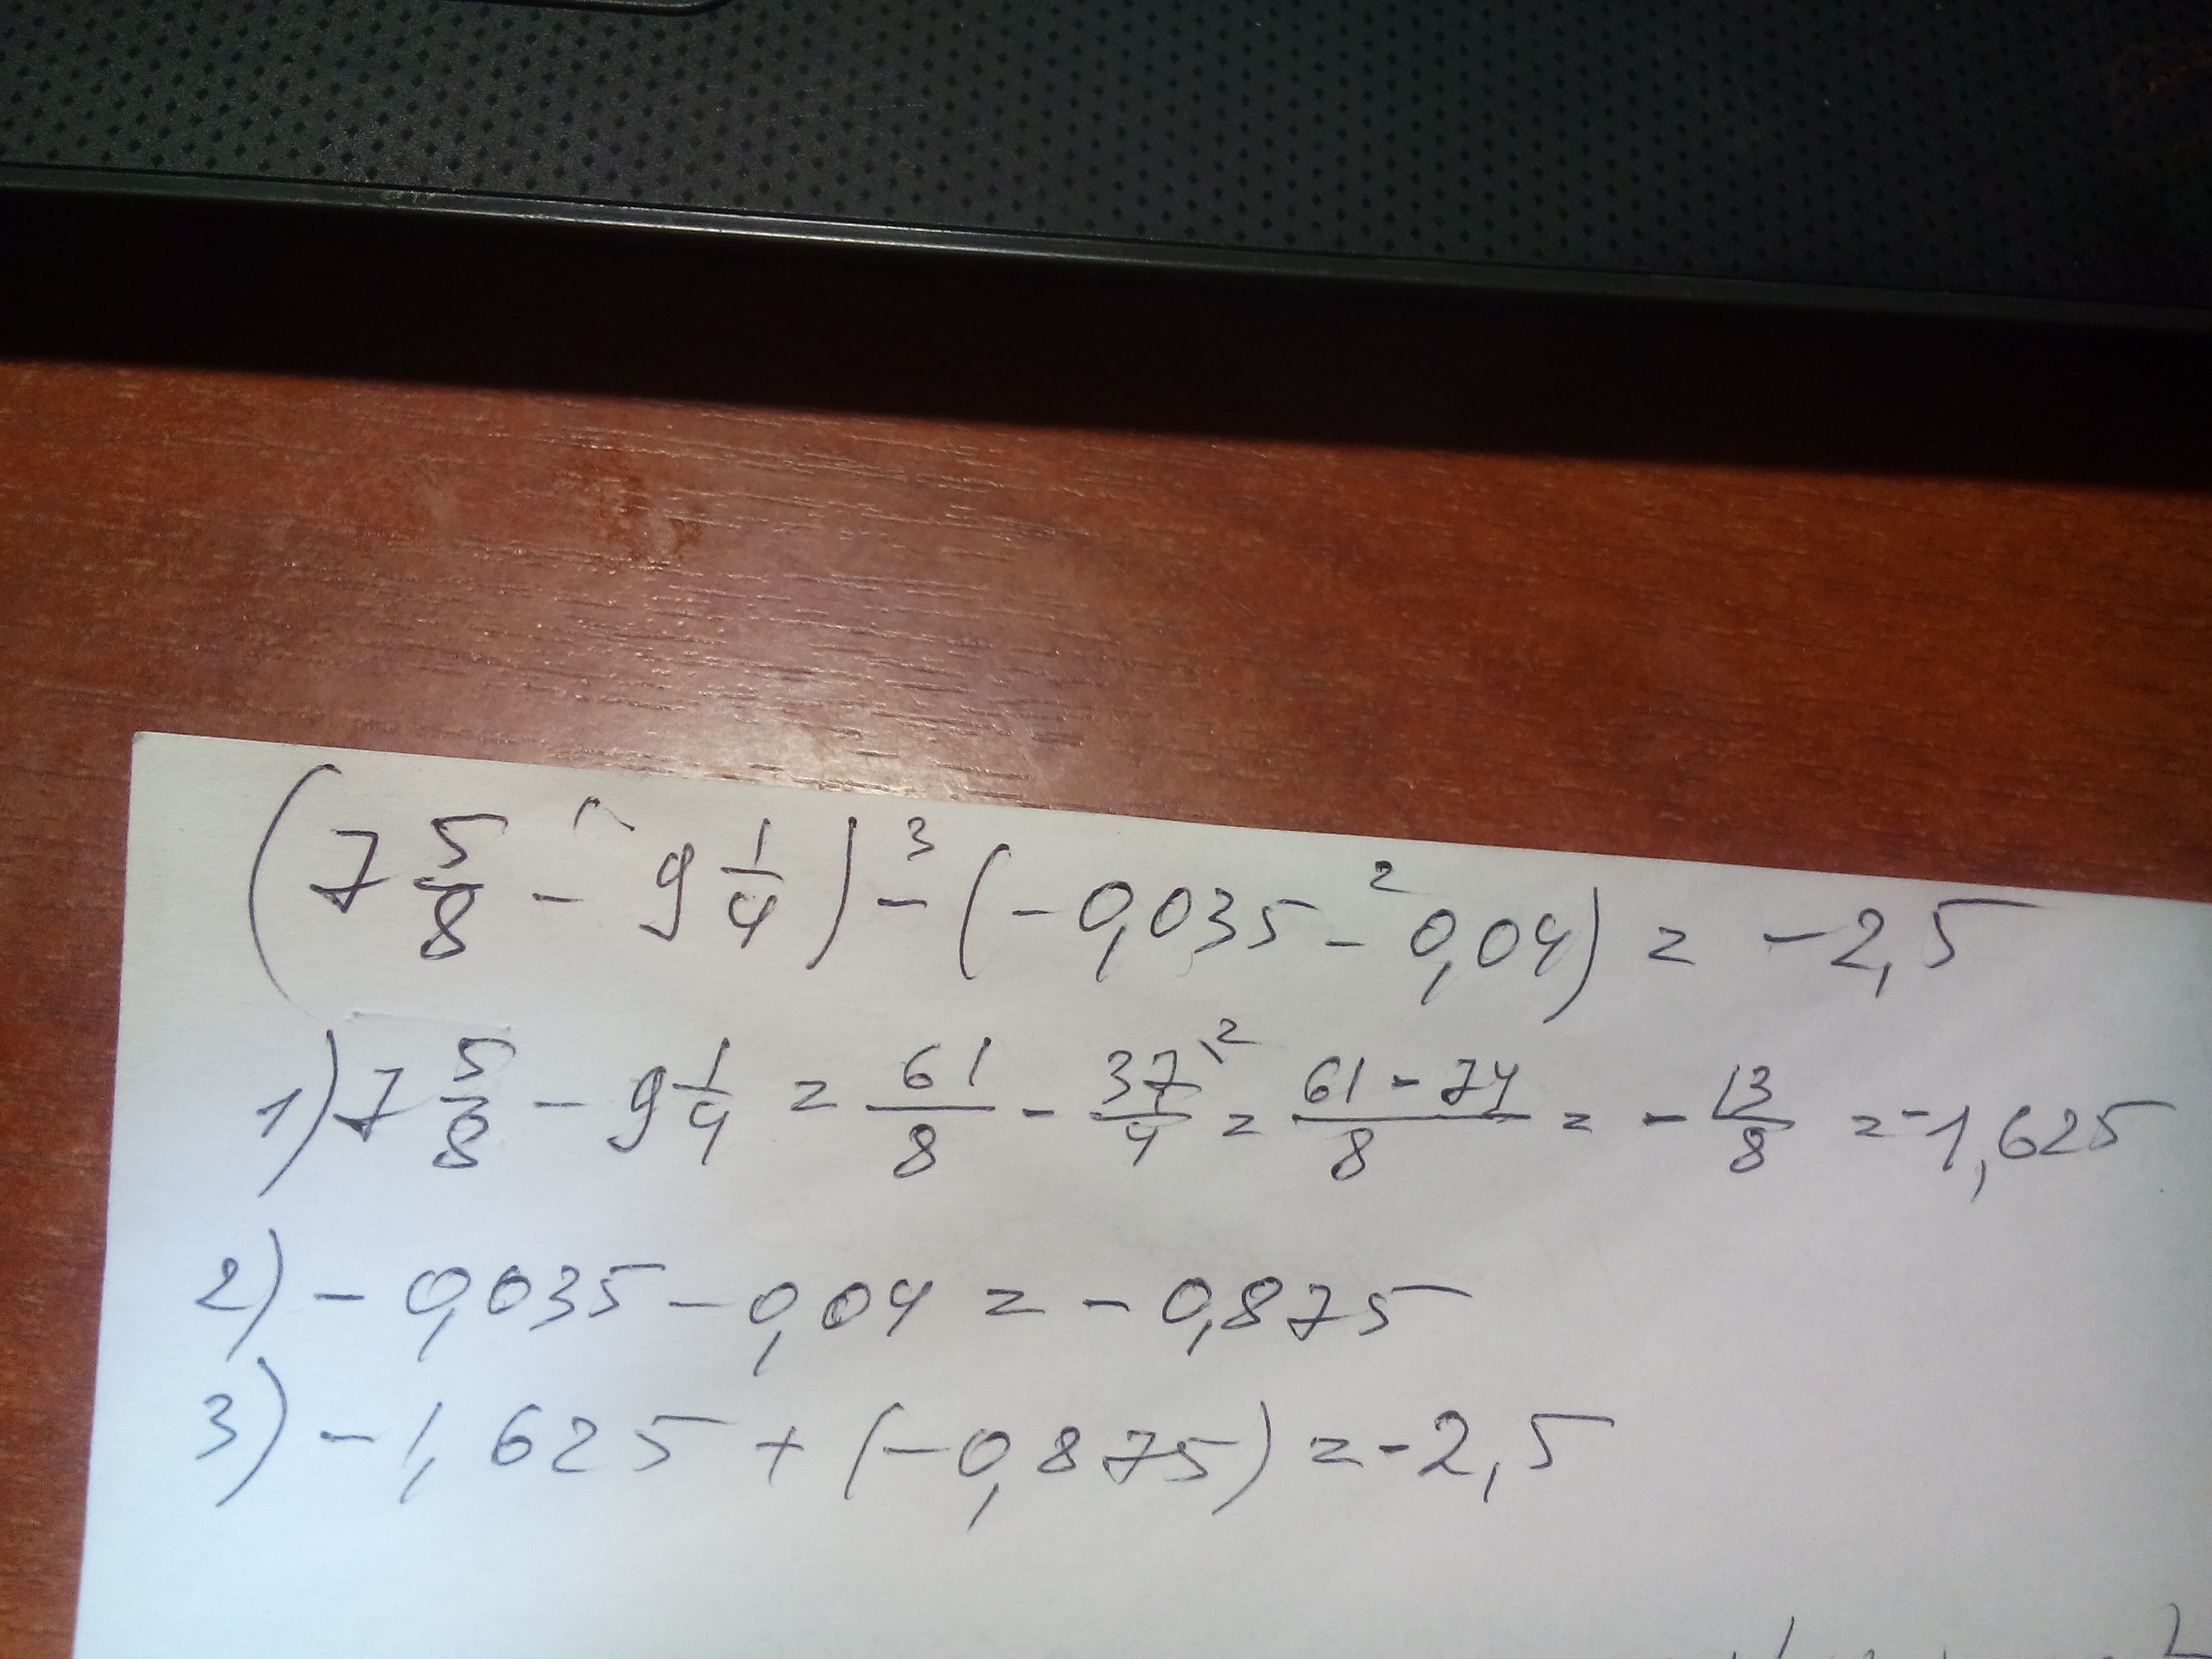 (7 5/8 - 9 1/4) - (-0,035 - 0,04) = -2,5
1) 7 5/8 - 9 1/4 = 61/8 - 37/4 \2 = (61 - 74)/8 = - 13/8 = -1,625
2) - 0,035 - 0,04 = - 0,875
3) - 1,625 + (-0,875) = -2,5